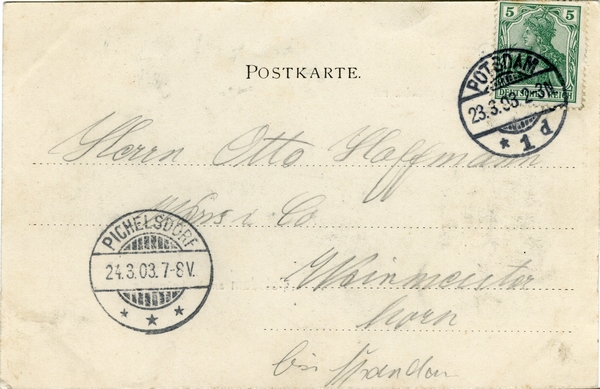 5 5
DEUTSCHES REICH
POSTKARTE.
POTSDAM
23.3.03 2-3N
* 1 d
Herrn Otto Hoffmann
& Co
PICHELSDORF
24.3.03.7-8V.
* * *
Weinmeister
horn
bei Spandau